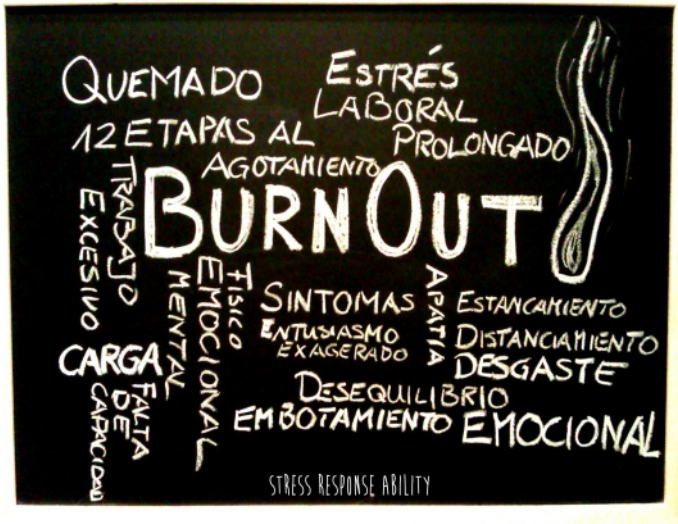 QUEMADO
ESTRÉS
LABORAL
PROLONGADO
12 ETAPAS AL
AGOTAMIENTO
BURNOUT
TRABAJO
EXCESIVO
MENTAL
EMOCIONAL
FISICO
SINTOMAS
ENTUSIASMO
EXAGERADO
APATIA
ESTANCAMIENTO
DISTANCIAMIENTO
DESGASTE
CARGA
FALTA
DE
CAPACIDAD
DESEQUILIBRIO
EMBOTAMIENTO EMOCIONAL
STRESS RESPONSE ABILITY